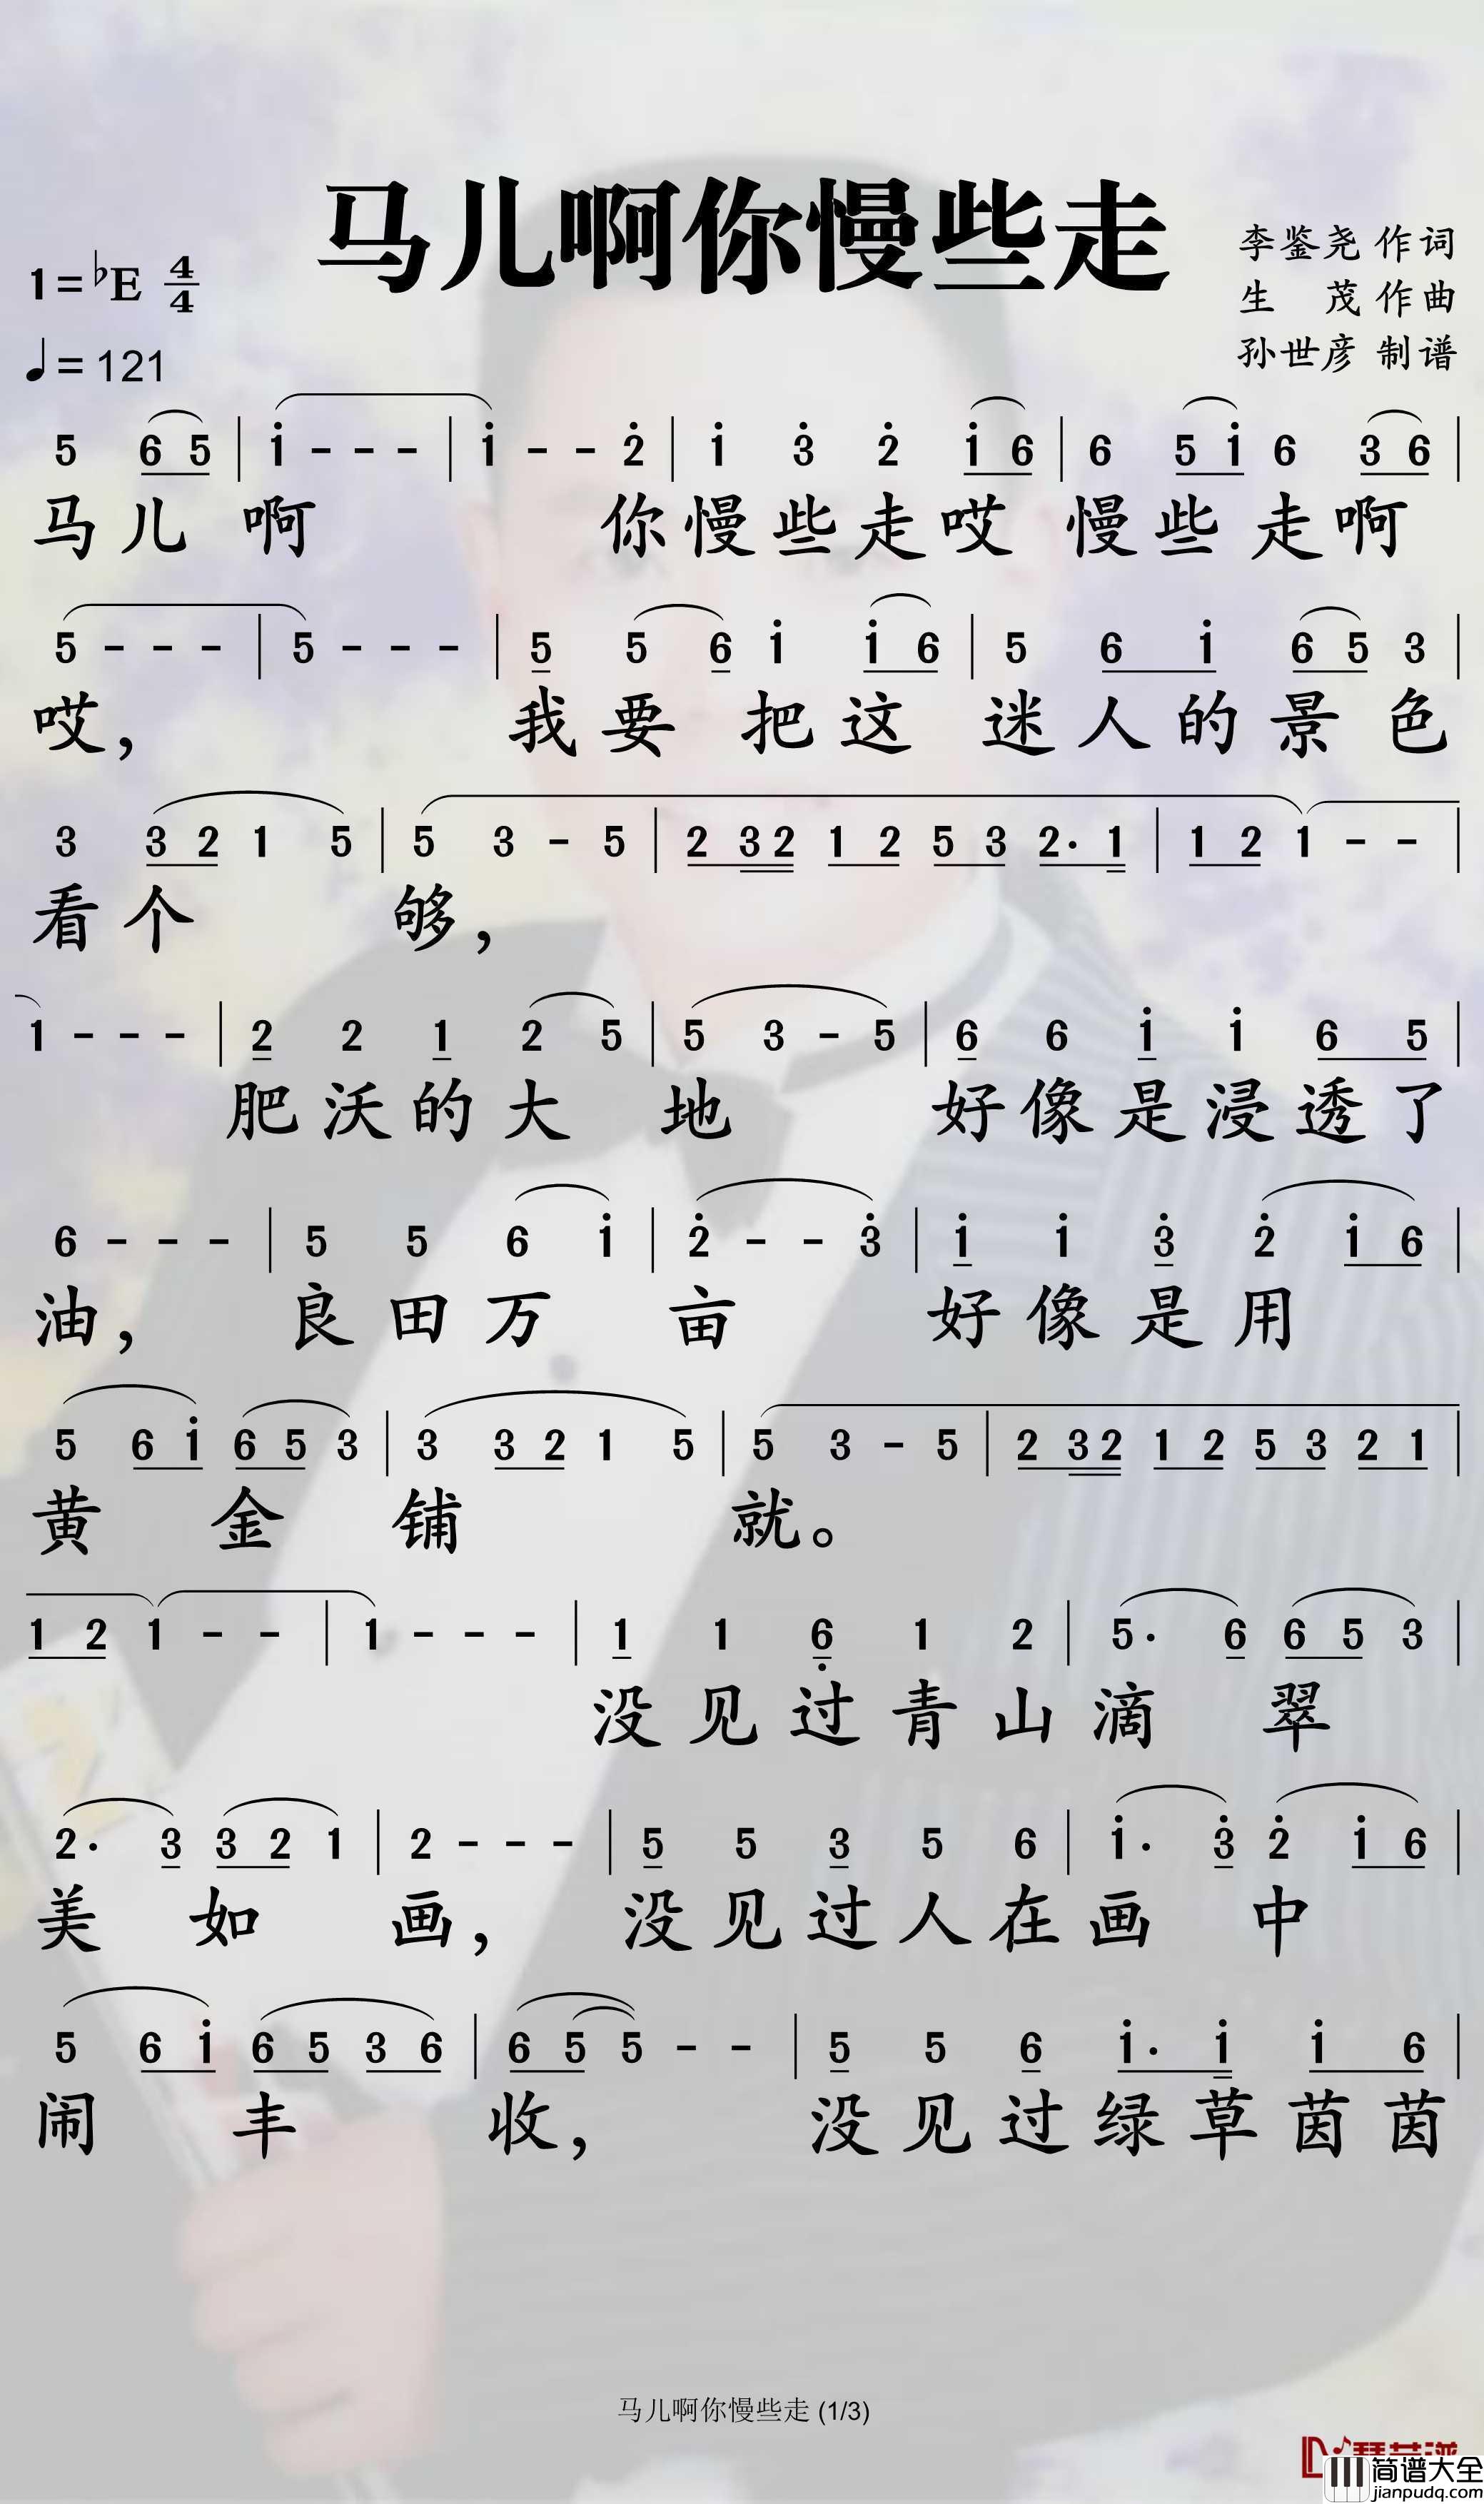 马儿啊你慢些走
李鉴尧 作词
生 茂 作曲
孙世彦 制谱
1=♭E 4/4
♩= 121
5 6 5 | i - - - | i - - 2̇ | i 3̇ 2̇ i 6 | 6 5 i 6 3 6 |
马儿 啊 你慢些走哎 慢些走啊
5 - - - | 5 - - - | 5 5 6 i i 6 | 5 6 i 6 5 3 |
哎, 我要 把这 迷人的景色
3 3 2 1 5 | 5 3 - 5 | 2 3 2 1 2 5 3 2· 1 | 1 2 1 - - |
看个 够,
1 - - - | 2 2 1 2 5 | 5 3 - 5 | 6 6 i i 6 5 |
肥沃的大 地 好像是浸透了
6 - - - | 5 5 6 i | 2̇ - - 3̇ | i i 3̇ 2̇ i 6 |
油, 良田万 亩 好像是用
5 6 i 6 5 3 | 3 3 2 1 5 | 5 3 - 5 | 2 3 2 1 2 5 3 2 1 |
黄 金 铺 就。
1 2 1 - - | 1 - - - | 1 1 6̣ 1 2 | 5· 6 6 5 3 |
没见过青山滴 翠
2· 3 3 2 1 | 2 - - - | 5 5 3 5 6 | i· 3̇ 2̇ i 6 |
美 如 画, 没见过人在画 中
5 6 i 6 5 3 6 | 6 5 5 - - | 5 5 6 i· i i 6 |
闹 丰 收, 没见过绿草茵茵
马儿啊你慢些走 (1/3)
简谱大全
jianpudq.com